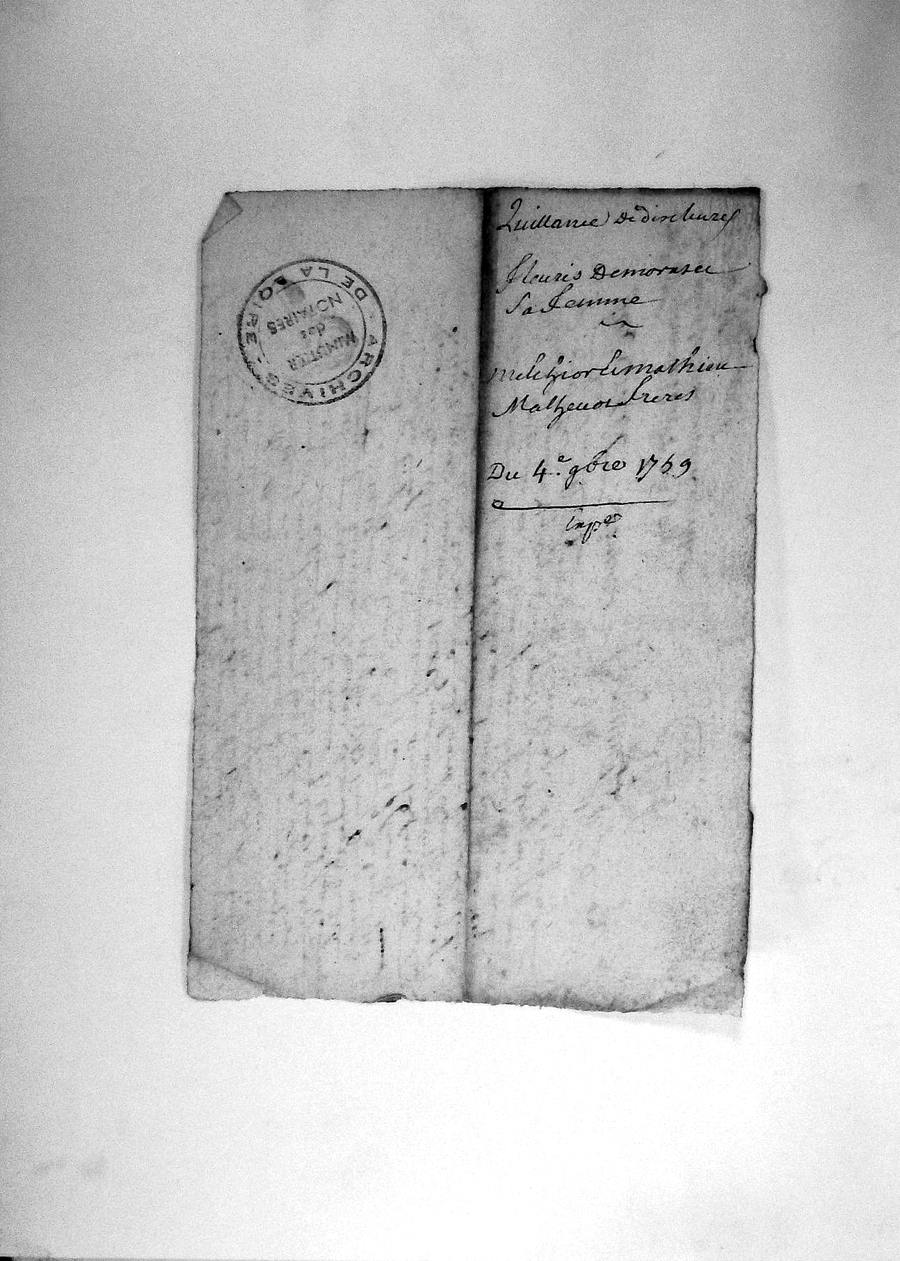 ARCHIVES DE LA LOIRE
MINUTIER
des
NOTAIRES
Quittance de dix livres
fleuris Demorasee
Sa femme
melchior & mathieu
Mathevot freres
Du 4e 9bre 1769
Expée